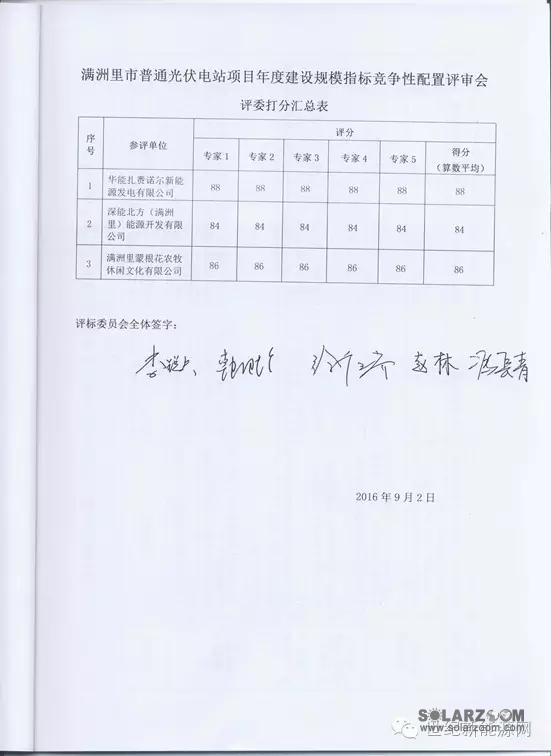 满洲里市普通光伏电站项目年度建设规模指标竞争性配置评审会
评委打分汇总表
序号 参评单位 评分
专家 1 专家 2 专家 3 专家 4 专家 5 得分
（算数平均）
1 华能扎赉诺尔新能 88 88 88 88 88 88
源发电有限公司
2 深能北方（满洲 84 84 84 84 84 84
里）能源开发有限
公司
3 满洲里蒙根花农牧 86 86 86 86 86 86
休闲文化有限公司
评标委员会全体签字：
赵林
2016 年 9 月 2 日
SOLARZOOM
www.solarzoom.com
世纪新能源网